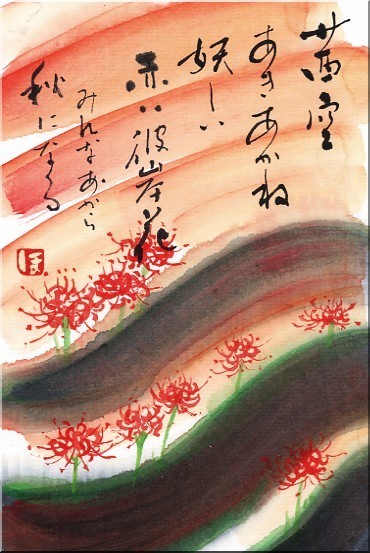 茜空
あきあかね
妖しい
赤い彼岸花
みんなあから
秋になる